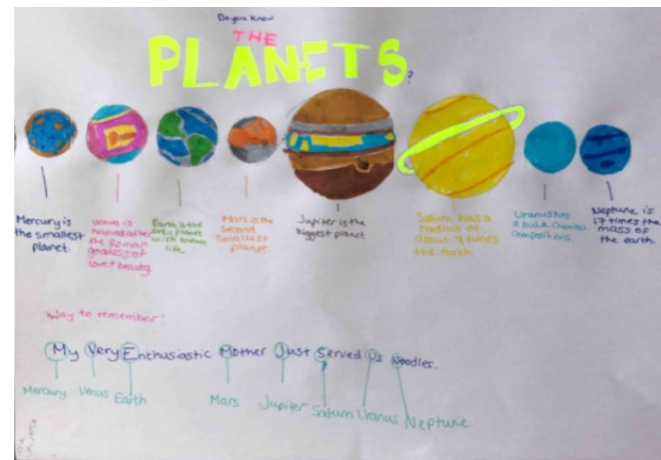 Do you Know
THE
PLANETS?
Mercury is
the smallest
planet
Venus is
named after
the Roman
goddess of
love + beauty.
Earth is the
only planet
with known
life.
Mars is the
second
smallest
planet.
Jupiter is the
biggest planet
Saturn has a
radius of
about 9 times
the earth.
Uranus has
a bulk chemical
compositions.
Neptune is
17 times the
mass of
the earth.
Way to remember:
My Very Enthusiastic Mother Just Served Us Noodles.
Mercury Venus Earth Mars Jupiter Saturn Uranus Neptune